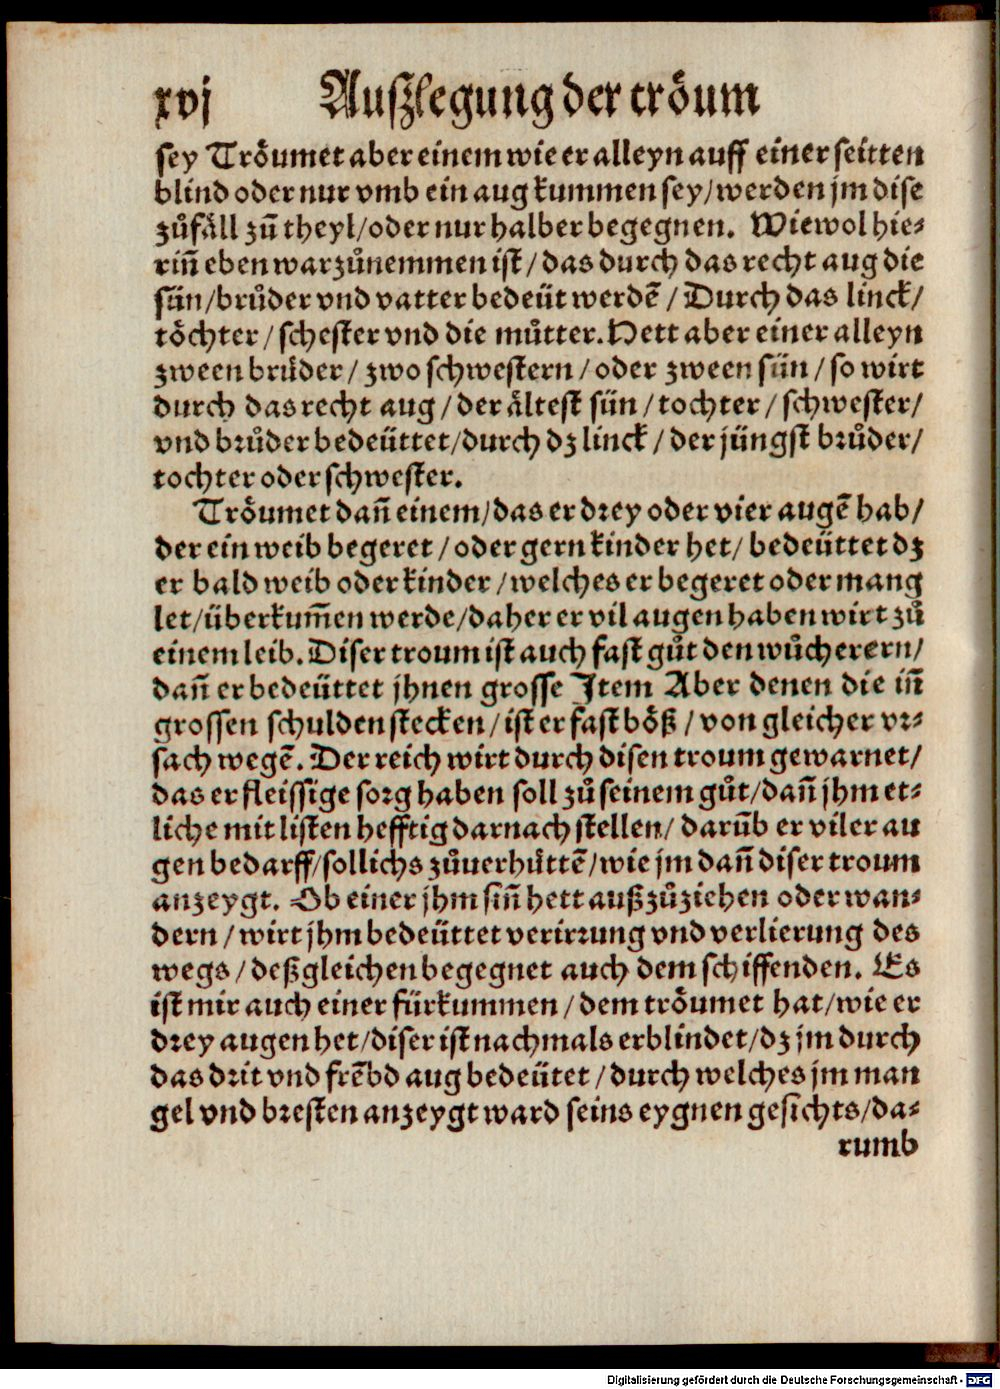 xvj Auſzlegung der troͤum
ſey Troͤumet aber einem wie er alleyn auff einer ſeitten
blind oder nur vmb ein aug kummen ſey/werden jm diſe
zuͦfaͤll zuͦ theyl/oder nur halber begegnen. Wiewol hie⸗
rin̄ eben war zuͦnemmen iſt/das durch das recht aug die
ſuͤn/bruͤder vnd vatter bedeüt werdẽ/Durch das linck/
toͤchter/ſcheſter vnd die muͦtter. Hett aber einer alleyn
zween bruͤder/zwo ſchweſtern/oder zween ſuͤn/ſo wirt
durch das recht aug/der aͤlteſt ſuͤn/tochter/ſchweſter/
vnd bꝛuͦder bedeüttet/durch dz linck/der juͤngſt bꝛuͦder/
tochter oder ſchweſter.
Troͤumet dañ einem/das er dꝛey oder vier augẽ hab/
der ein weib begeret/oder gern kinder het/bedeüttet dz
er bald weib oder kinder/welches er begeret oder mang
let/überkum̄en werde/daher er vil augen haben wirt zuͦ
einem leib. Diſer troum iſt auch faſt guͦt den wuͦcherern/
dañ er bedeüttet jhnen groſſe Item Aber denen die in̄
groſſen ſchulden ſtecken/iſt er faſt boͤß/von gleicher vꝛ⸗
ſach wegẽ. Der reich wirt durch diſen troum gewarnet/
das er fleiſſige ſoꝛg haben ſoll zuͦ ſeinem guͦt/dañ jhm et⸗
liche mit liſten hefftig darnach ſtellen/darũb er viler au
gen bedarff/ſollichs zuͦuerhuͤttẽ/wie jm dañ diſer troum
anzeygt. Ob einer jhm ſin̄ hett außzuͦziehen oder wan⸗
dern/wirt jhm bedeüttet verirꝛung vnd verlierung des
wegs/deßgleichen begegnet auch dem ſchiffenden. Es
iſt mir auch einer fürkummen/dem troͤumet hat/wie er
dꝛey augen het/diſer iſt nachmals erblindet/dz jm durch
das dꝛit vnd frẽbd aug bedeütet/durch welches jm man
gel vnd bꝛeſten anzeygt ward ſeins eygnen geſichts/da⸗
rumb
Digitalisierung gefördert durch die Deutsche Forschungsgemeinschaft - DFG